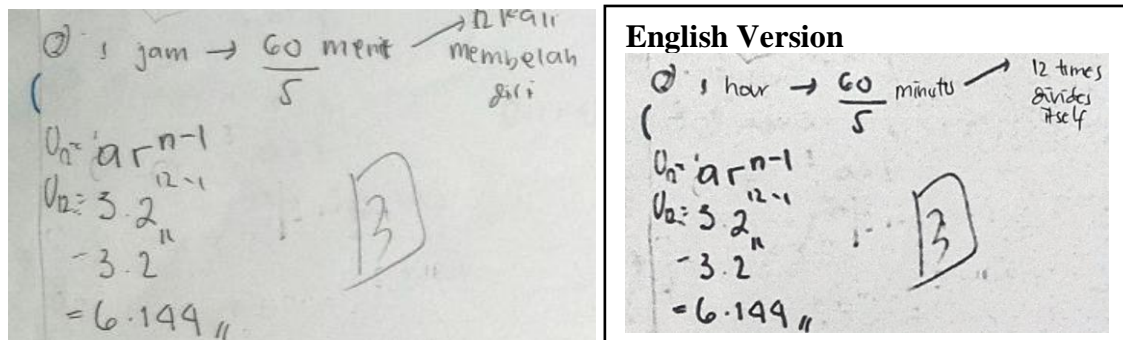 ② 1 jam → 60/5 menit → 12 kali
membelah
diri
Un = ar^n-1
U12 = 3.2^12-1
= 3.2^11
= 6.144 //
3
English Version
② 1 hour → 60/5 minutes → 12 times
divides
itself
Un = ar^n-1
U12 = 3.2^12-1
= 3.2^11
= 6.144 //
3